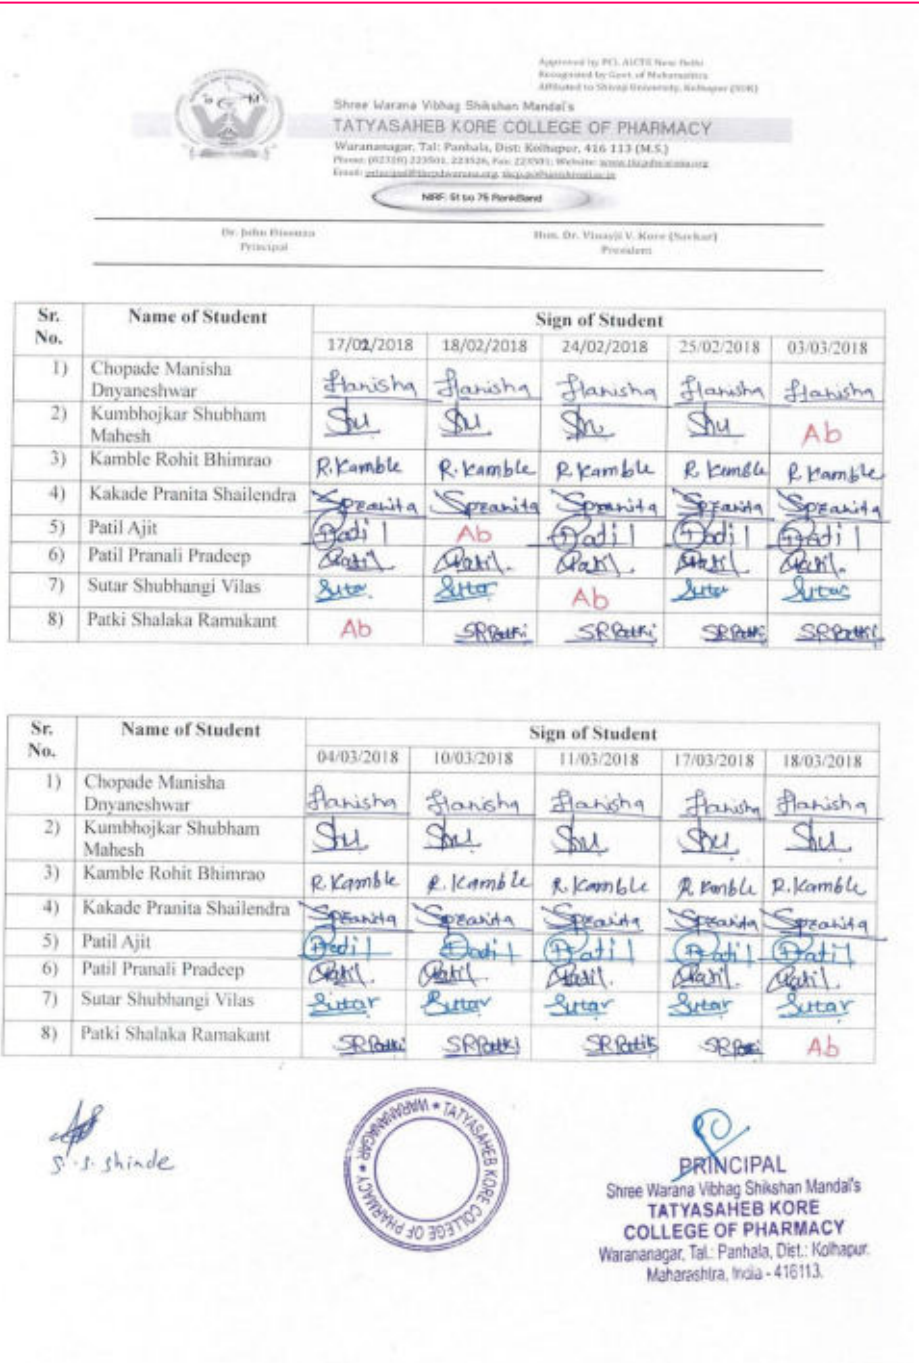 Approved by PCI, AICTE New Delhi
Recognised by Govt. of Maharashtra
Affiliated to Shivaji University, Kolhapur (SUK)
Shree Warana Vibhag Shikshan Mandal's
TATYASAHEB KORE COLLEGE OF PHARMACY
Warananagar, Tal: Panhala, Dist: Kolhapur, 416 113 (M.S.)
Phone: (02328) 223501, 223526, Fax: 223501; Website: www.tkcpwarana.org
Email:
NIRF: 51 to 75 RankBand
Dr. John Disouza Hon. Dr. Vinayji V. Kore (Savkar)
Principal President
Sr. No. Name of Student Sign of Student
17/02/2018 18/02/2018 24/02/2018 25/02/2018 03/03/2018
1) Chopade Manisha
Dnyaneshwar Manisha Manisha Manisha Manisha Manisha
2) Kumbhojkar Shubham
Mahesh Shu Shu Shu Shu Ab
3) Kamble Rohit Bhimrao R.Kamble R.Kamble R.Kamble R.Kamble R.Kamble
4) Kakade Pranita Shailendra Spranita Spranita Spranita Spranita Spranita
5) Patil Ajit Patil Ab Patil Patil Patil
6) Patil Pranali Pradeep Patil. Patil. Patil. Patil. Patil.
7) Sutar Shubhangi Vilas Sutar Sutar Ab Sutar Sutar
8) Patki Shalaka Ramakant Ab SRPatki SRPatki SRPatki SRPatki
Sr. No. Name of Student Sign of Student
04/03/2018 10/03/2018 11/03/2018 17/03/2018 18/03/2018
1) Chopade Manisha
Dnyaneshwar Manisha Manisha Manisha Manisha Manisha
2) Kumbhojkar Shubham
Mahesh Shu Shu Shu Shu Shu
3) Kamble Rohit Bhimrao R.Kamble R.Kamble R.Kamble R.Kamble R.Kamble
4) Kakade Pranita Shailendra Spranita Spranita Spranita Spranita Spranita
5) Patil Ajit Patil Patil Patil Patil Patil
6) Patil Pranali Pradeep Patil. Patil. Patil. Patil. Patil.
7) Sutar Shubhangi Vilas Sutar Sutar Sutar Sutar Sutar
8) Patki Shalaka Ramakant SRPatki SRPatki SRPatki SRPatki Ab
S.S.Shinde
TATYASAHEB KORE COLLEGE OF PHARMACY ★ WARANANAGAR ★
PRINCIPAL
Shree Warana Vibhag Shikshan Mandal's
TATYASAHEB KORE
COLLEGE OF PHARMACY
Warananagar, Tal.: Panhala, Dist.: Kolhapur.
Maharashtra, India - 416113.